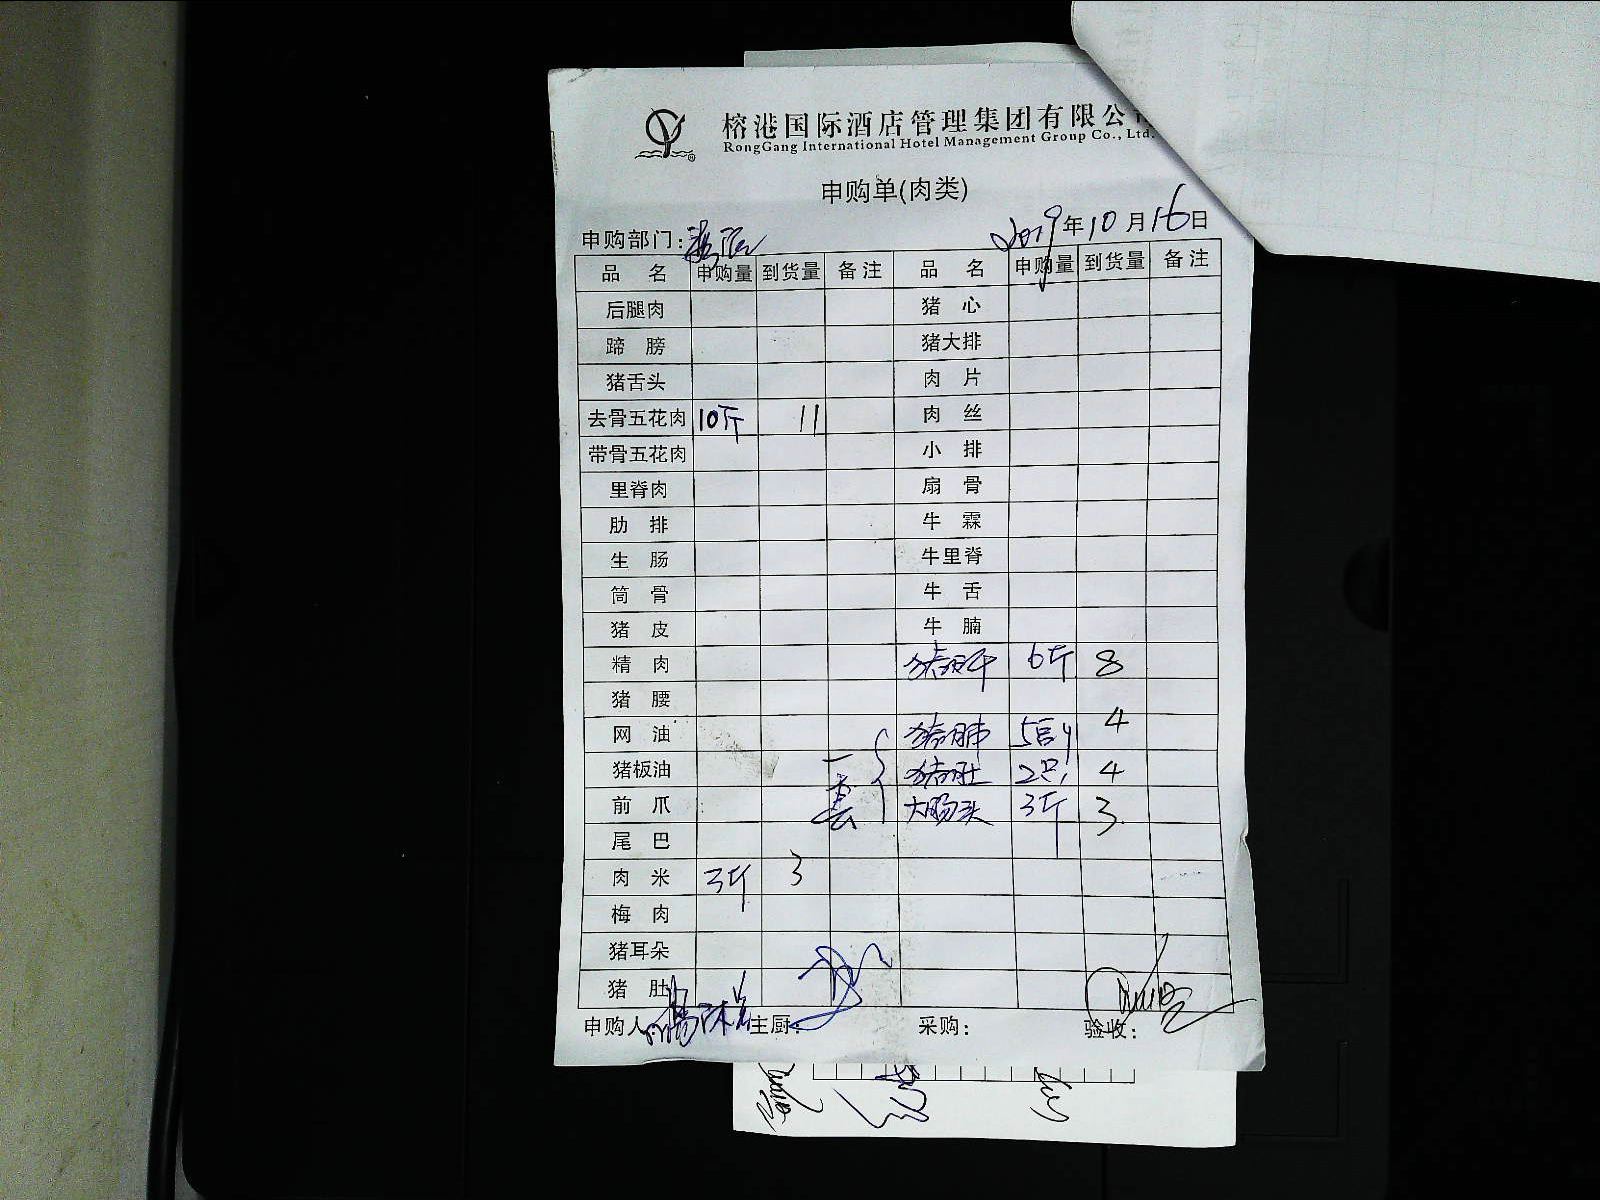 榕港国际酒店管理集团有限公
RongGang International Hotel Management Group Co., Ltd.
申购单(肉类)
申购部门: 2019年10月16日
品 名 申购量 到货量 备注 品 名 申购量 到货量 备注
后腿肉 猪 心
蹄 膀 猪大排
猪舌头 肉 片
去骨五花肉 10斤 11 肉 丝
带骨五花肉 小 排
里脊肉 扇 骨
肋 排 牛 霖
生 肠 牛里脊
筒 骨 牛 舌
猪 皮 牛 腩
精 肉 猪肝 6斤 8
猪 腰
网 油 猪肺 5副 4
猪板油 一套 猪肚 2只 4
前 爪 大肠头 3斤 3
尾 巴
肉 米 3斤 3
梅 肉
猪耳朵
猪 肚
申购人: 主厨: 采购: 验收: